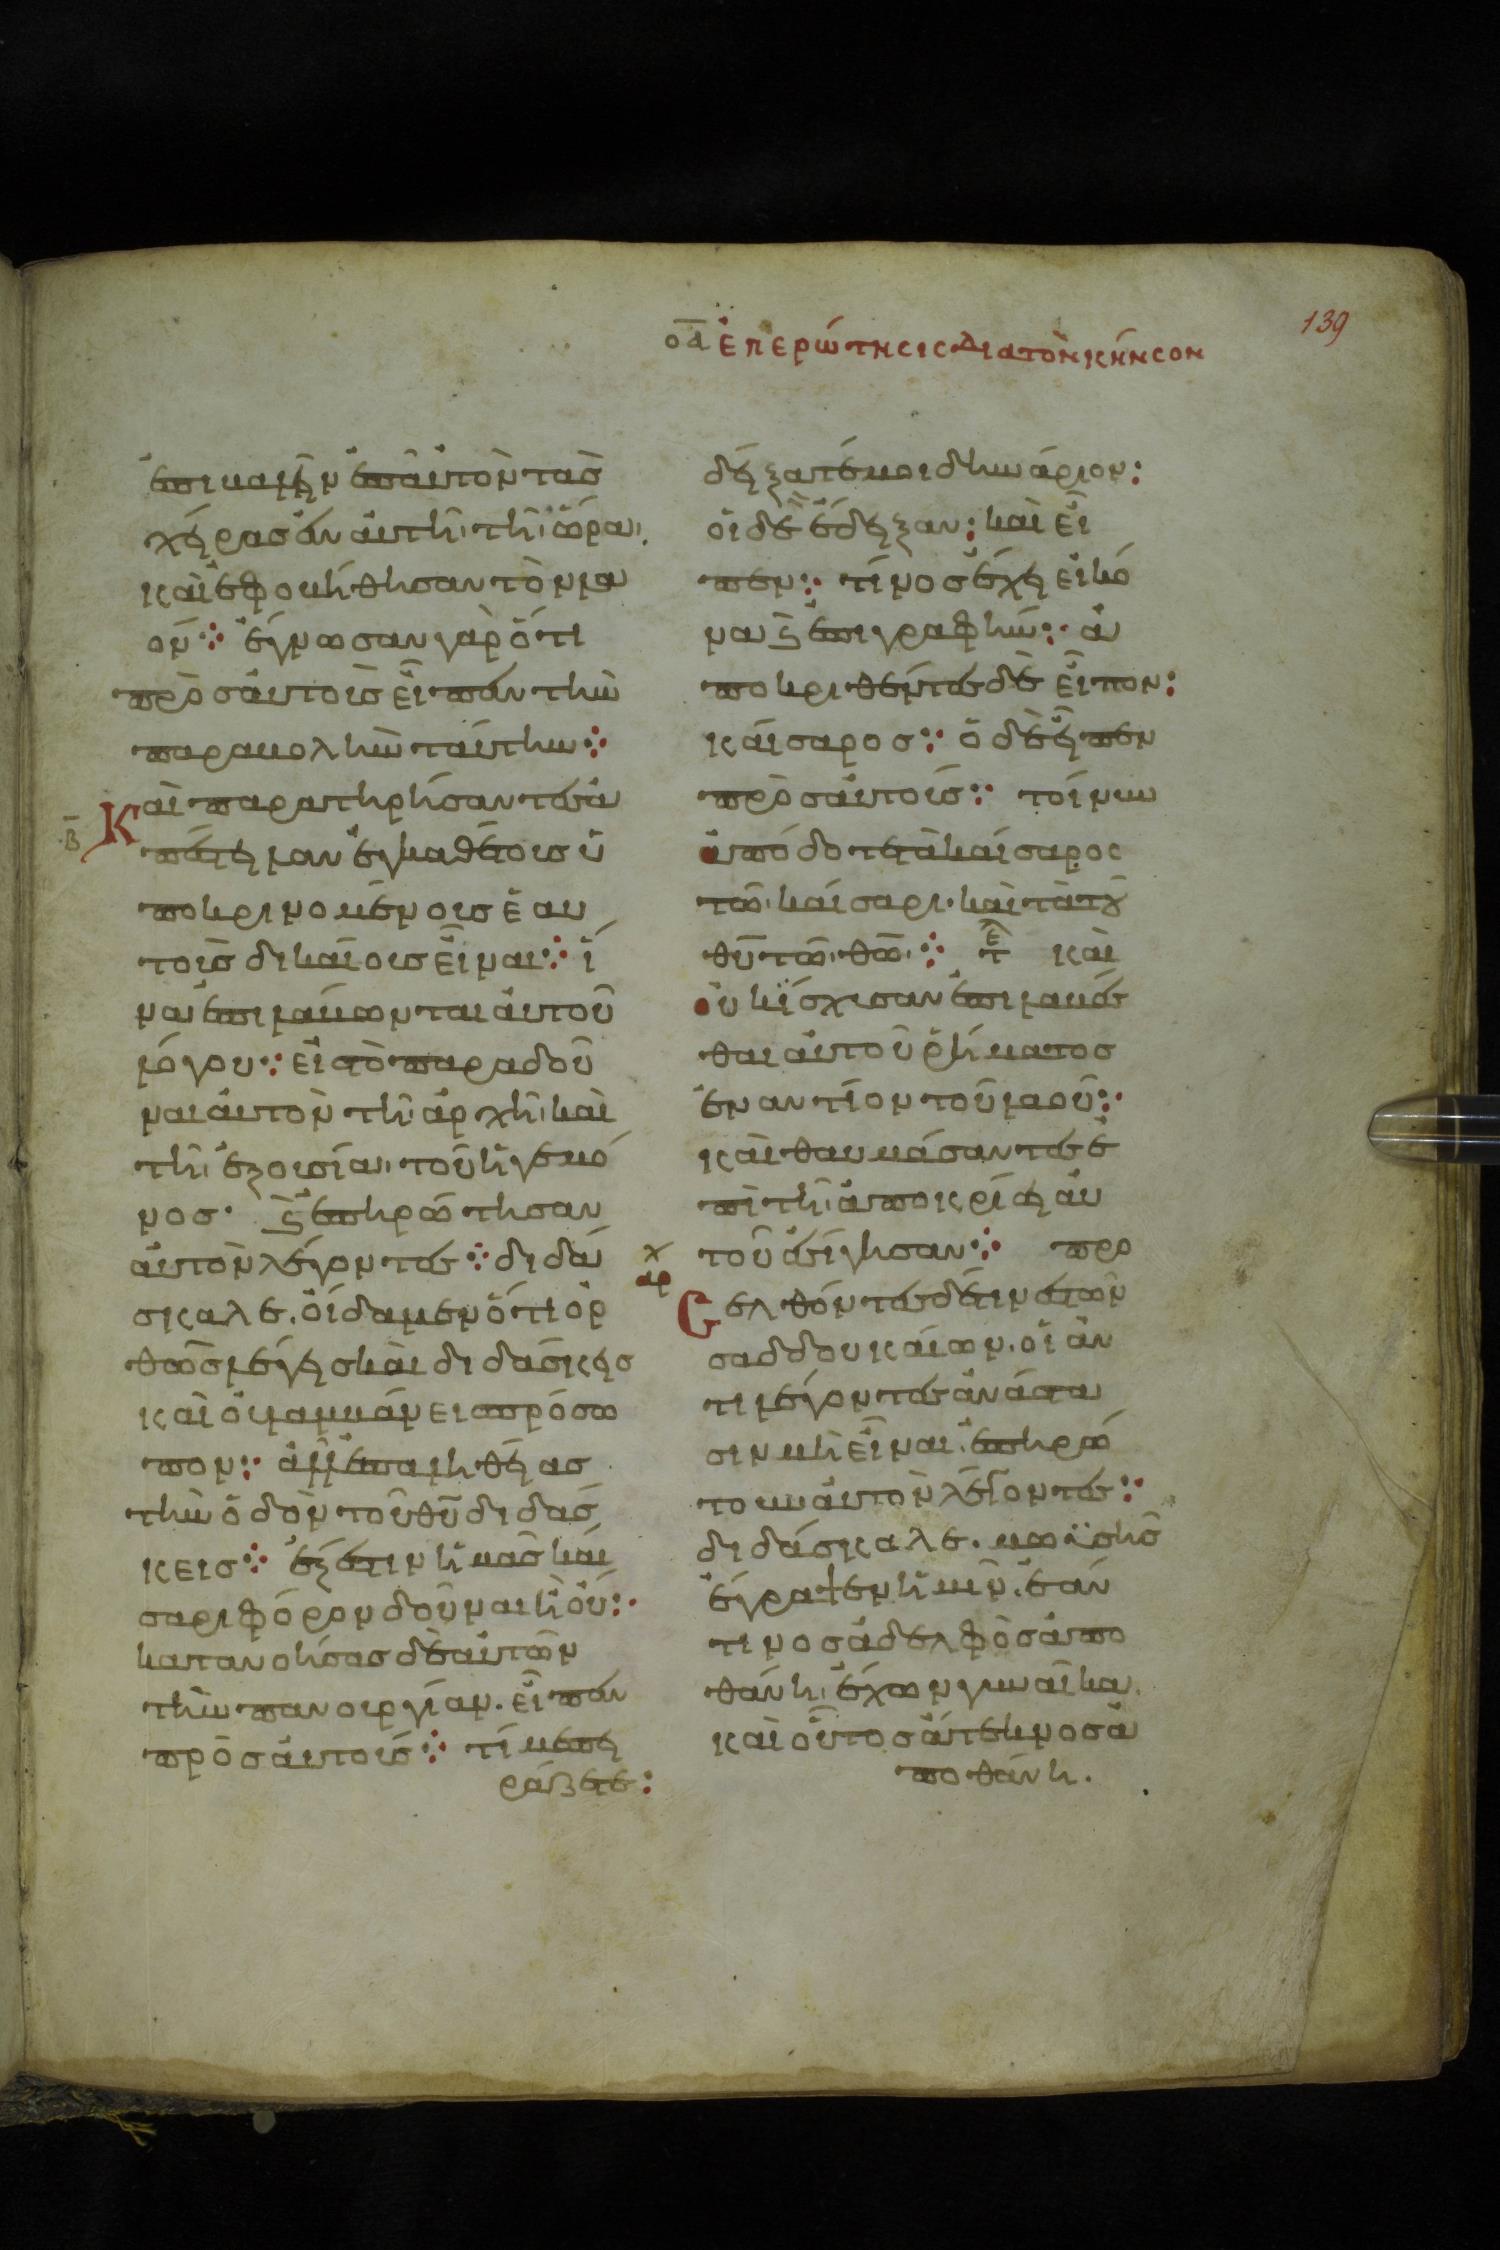 139
οα ἐπερώτησις διὰ τὸν κῆνσον
ἐπιβαλεῖν ἐπ αὐτὸν τὰσ
χεῖρασ ἐν αὐτῆι τῆι ὥραι.
καὶ ἐφοβήθησαν τὸν λα
όν· ἔγνωσαν γὰρ ὅτι
πρὸσ αὐτοὺσ εἶπεν τὴν
παραβολὴν ταύτην·
β Καὶ παρατηρήσαντεσ ἀ
πέστειλαν ἐγκαθέτουσ ὑ
ποκρινομένουσ ἑαυ
τοὺσ δικαίουσ εἶναι· ἵ
να ἐπιλάβωνται αὐτοῦ
λόγου: εἰσ τὸ παραδοῦ
ναι αὐτὸν τῆι ἀρχῆι καὶ
τῆι ἐξουσίαι τοῦ ἡγεμό
νοσ· ϗ ἐπηρώτησαν
αὐτὸν λέγοντεσ· διδά
σκαλε. οἴδαμεν ὅτι ὀρ
θῶσ λέγεισ καὶ διδάσκεισ
καὶ οὐ λαμβάνεισ πρόσω
πον: ἀλλ ἐπ ἀληθείασ
τὴν ὁδὸν τοῦ θυ διδάσ
κεισ· ἔξεστιν ἡμᾶσ καί
σαρι φόρον δοῦναι ἢ οὔ:
κατανοήσασ δὲ αὐτῶν
τὴν πανουργίαν. εἶπεν
πρὸσ αὐτούσ· τί με πει
ράζετε:
δείξατέ μοι δηνάριον:
οἱ δὲ ἔδειξαν: καὶ εἶ
πεν: τίνοσ ἔχει εἰκό
να ϗ ἐπιγραφήν: ἀ
ποκριθέντεσ δὲ εἶπον:
καίσαροσ: ὁ δὲ εἶπεν
πρὸσ αὐτούσ: τοίνυν
ἀπόδοτε τὰ καίσαροσ
τῶι καίσαρι. καὶ τὰ τοῦ
θυ τῶι θω· τε καὶ
οὐκ ἴσχυσαν ἐπιλαβέσ
θαι αὐτοῦ ῥήματοσ
ἐναντίον τοῦ λαοῦ:
καὶ θαυμάσαντεσ ἐ
πὶ τῆι ἀποκρίσει αὐ
τοῦ ἐσίγησαν· προ
αρχ σελθόντεσ δέ τινεσ τῶν
σαδδουκαίων. οἱ ἀν
τιλέγοντεσ ἀνάστα
σιν μὴ εἶναι. ἐπηρώ
των αὐτὸν λέγοντεσ:
διδάσκαλε. μωϋσῆσ
ἔγραψεν ἡμῖν. ἐάν
τινοσ ἀδελφὸσ ἀπο
θάνηι ἔχων γυναῖκα.
καὶ οὗτοσ ἄτεκνοσ ἀ
ποθάνηι.